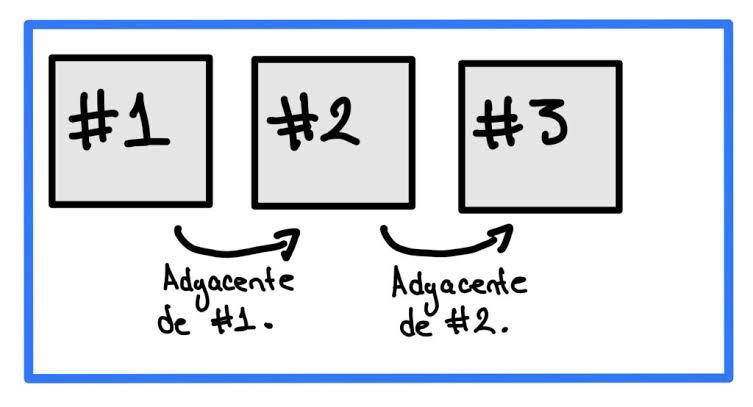 #1
#2
#3
Adyacente
de #1.
Adyacente
de #2.